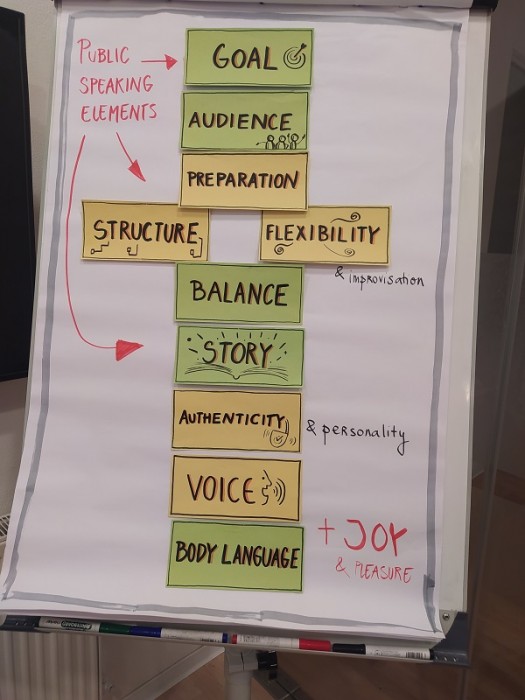 PUBLIC
SPEAKING
ELEMENTS
GOAL
AUDIENCE
PREPARATION
STRUCTURE
FLEXIBILITY
& improvisation
BALANCE
STORY
AUTHENTICITY
& personality
VOICE
BODY LANGUAGE
+ JOY
& PLEASURE